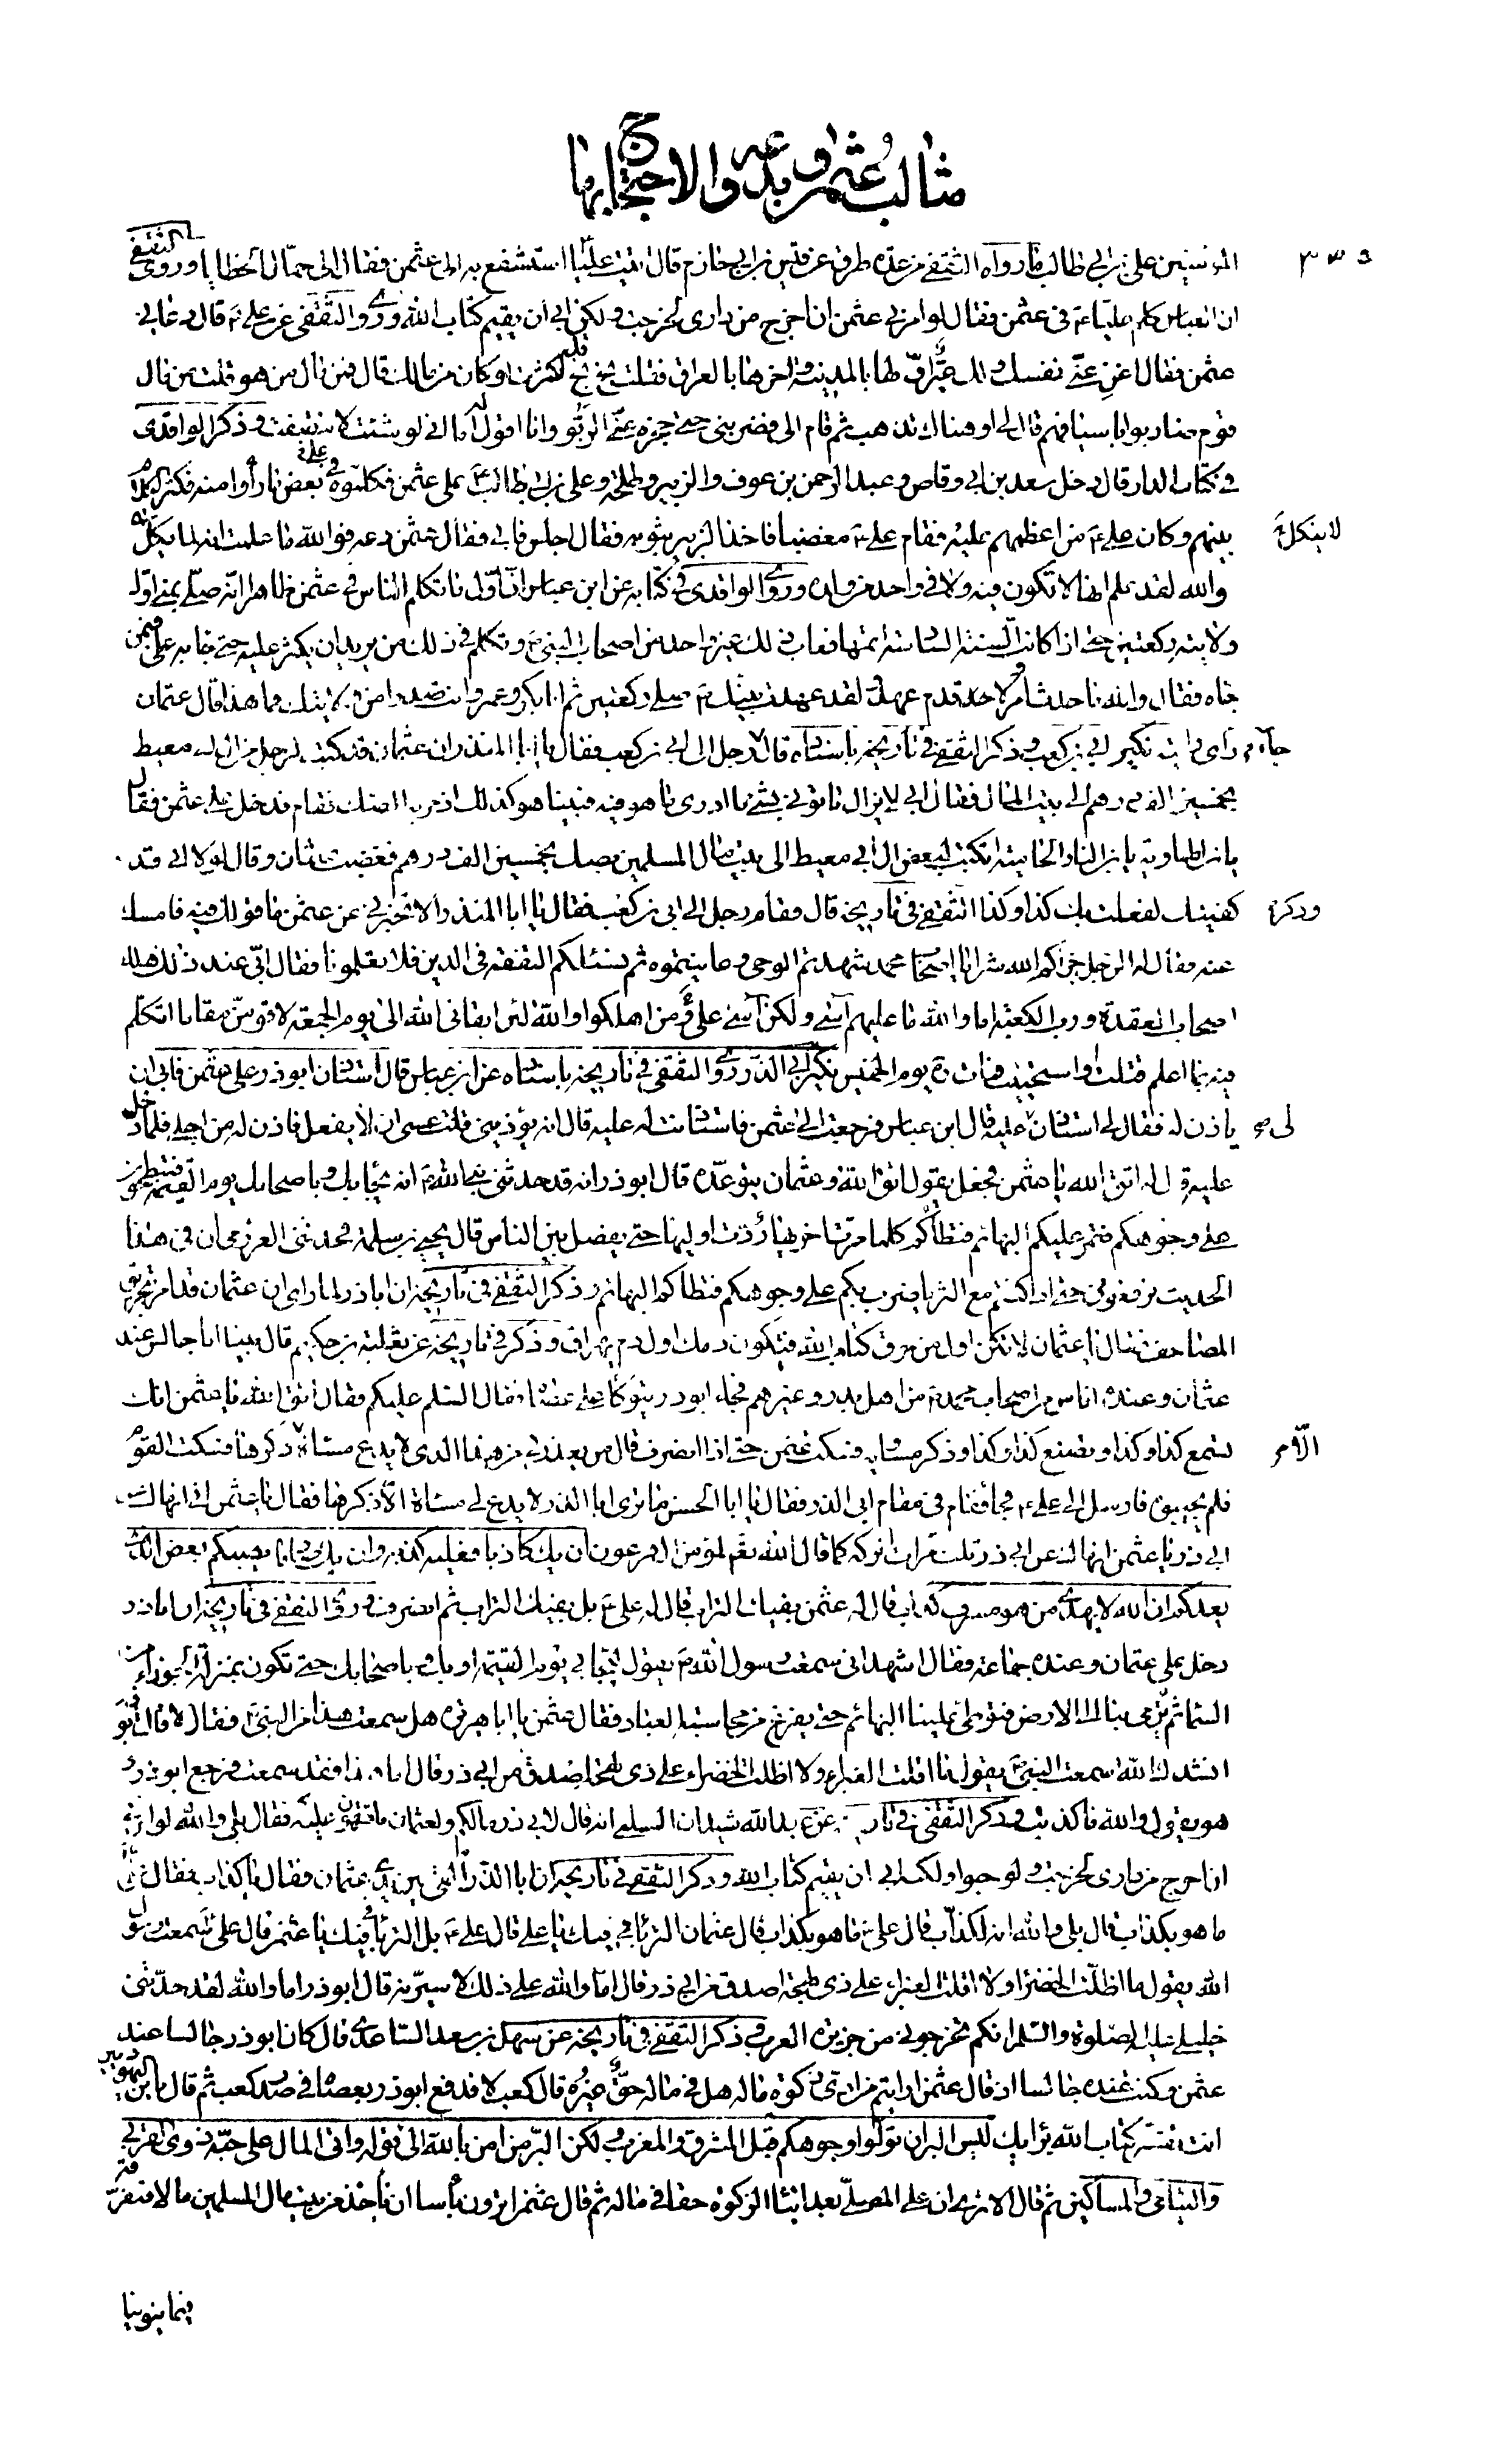 مثالب عثمن وبدعه والاحتجاج بها
المؤمنين علي بن ابي طالب ما رواه الثقفي من عدة طرق عن قيس بن ابي حازم قال اتيت عليا استشفع به الى عثمن فقال الى حمال الخطايا وروى الثقفي
ان العباس كلم عليا ع في عثمن فقال لو امرني عثمن ان اخرج من داري لخرجت ولكن ابى ان يقيم كتاب الله وروى الثقفي عن علي ع قال دعاني
عثمن فقال اغن عني نفسك ولك عير اولها بالمدينة واخرها بالعراق فقلت بخ بخ قد اكثرت لو كان من مالك قال فمن مال من هو قلت من مال
قوم ضاربوا باسيافهم قال لي او هناك تذهب ثم قام الي فضربني حتى حجزه عني الربو وانا اقول له اما اني لو شئت لانتصفت وذكر الواقدي
في كتاب الدار قال دخل سعد بن ابي وقاص وعبد الرحمن بن عوف والزبير وطلحة وعلي بن ابي طالب ع على عثمن فكلموه في بعض ما رأوا منه فكثر الكلام
بينهم وكان علي ع من اعظمهم عليه فقام علي ع مغضبا فاخذ الزبير بثوبه فقال اجلس فابى فقال عثمن دعه فوالله ما علمت انه لما يكل
لا ينكل
والله لقد علم انها لا تكون فيه ولا في واحد من ولده وروى الواقدي في كتابه عن ابن عباس ان اول ما تكلم الناس في عثمن ظاهرا انه صلى بمنى اول
ولايته ركعتين حتى اذا كانت السنة السادسة اتمها فعاب ذلك غير واحد من اصحاب النبي ص وتكلم في ذلك من يريد ان يكثر عليه حتى جاءه علي فيمن
جاه فقال والله ما حدث امر ولا قدم عهد لقد عهدت نبيك ص صلى ركعتين ثم ابا بكر وعمر وانت صدرا من ولايتك فما هذا قال عثمان
رأي رأيته نكير ابي بن كعب وذكر الثقفي في تاريخه باسناده قال جاء رجل الى ابي بن كعب فقال يا ابا المنذر ان عثمان قد كتب لرجل من ال ابي معيط
بخمسين الف درهم الى بيت المال فقال ابي لا يزال تاتوني بشئ ما ادري ما هو فيه فبينا هو كذلك اذ مر به الصك فقام فدخل على عثمن فقال
يابن الهاوية يابن النار الحامية اتكتب لبعض ال ابي معيط الى بيت مال المسلمين بصك بخمسين الف درهم فغضب عثمان وقال لولا اني قد
كفيتك لفعلت بك كذا وكذا وذكر الثقفي في تاريخه قال فقام رجل الى ابي بن كعب فقال يا ابا المنذر الا تخبرني عن عثمن ما قولك فيه فامسك
عنه فقال له الرجل جزاكم الله شرا يا اصحاب محمد شهدتم الوحي وعاينتموه ثم نسئلكم التفقه في الدين فلا تعلمونا فقال ابي عند ذلك هلك
اصحاب العقدة ورب الكعبة اما والله ما عليهم آسى ولكن آسى على من اهلكوا والله لئن ابقاني الله الى يوم الجمعة لاقومن مقاما اتكلم
فيه بما اعلم قتلت او استحييت فمات ره يوم الخميس نكير ابي الذر وروى الثقفي في تاريخه باسناده عن ابن عباس قال استاذن ابوذر على عثمن فابى ان
ياذن له فقال لي استاذن لي عليه قال ابن عباس فرجعت الى عثمن فاستاذنت له عليه قال انه يؤذيني قلت عسى ان لا يفعل فاذن له من اجلي فلما دخل
عليه قال له اتق الله يا عثمن فجعل يقول اتق الله وعثمان يتوعده قال ابوذر انه قد حدثني نبي الله ص انه يجاء بك وباصحابك يوم القيمة فتبطحون
على وجوهكم فتمر عليكم البهائم فتطأكم كلما مرت اخريها ردت اوليها حتى يفصل بين الناس قال يحيى بن سلمة فحدثني العرزمي ان في هذا
الحديث ترفعوني حتى اذا كنتم مع الثريا ضرب بكم على وجوهكم فتطاكم البهائم وذكر الثقفي في تاريخه ان اباذر لما راى ان عثمان قد امر بتحريق
المصاحف فقال يا عثمان لا تكن اول من حرق كتاب الله فيكون دمك اول دم يهراق وذكر في تاريخه عن ثعلبة بن حكيم قال بينا انا جالس عند
عثمان وعنده اناس من اصحاب محمد ص من اهل بدر وغيرهم فجاء ابوذر يتوكأ على عصاه فقال السلم عليكم فقال اتق الله يا عثمن انك
تسمع كذا وكذا وتصنع كذا وكذا وذكر مساويه فسكت عثمن حتى اذا انصرف قال من يعذرني من هذا الذي لا يدع مساءة الا ذكرها فسكت القوم
فلم يجيبوه فارسل الى علي ع فجاء فقام في مقام ابي الذر فقال يا ابا الحسن ما ترى ابا الذر لا يدع لي مساءة الا ذكرها فقال يا عثمن اني انهاك عن
ابي ذر يا عثمن انهاك عن ابي ذر ثلث مرات اتركه كما قال الله تعم لمؤمن ال فرعون ان يك كاذبا فعليه كذبه وان يك صادقا يصبكم بعض الذي
يعدكم ان الله لا يهدي من هو مسرف كذاب قال له عثمن بفيك التراب قال له علي ع بل بفيك التراب ثم انصرف وروى الثقفي في تاريخه ان اباذر
دخل على عثمان وعنده جماعة فقال اشهد اني سمعت رسول الله ص يقول ليجاء بي يوم القيمة او بك وباصحابك حتى تكون بمنزلة الجوزاء من
السماء ثم يرمى بنا الى الارض فتوطى علينا البهائم حتى يفرغ من محاسبة العباد فقال عثمن يا ابا هريرة هل سمعت هذا من النبي ص فقال لا قال ابوذر
انشدك الله سمعت النبي ص يقول ما اقلت الغبراء ولا اظلت الخضراء على ذي لهجة اصدق من ابي ذر قال اما هذا فقد سمعت فرجع ابوذر
وهو يقول والله ما كذبت وذكر الثقفي في تاريخه عن عبد الله شيدان السلمي انه قال لابي ذر ما لكم ولعثمان ما تهون عليه فقال بلى والله لو امرني
ان اخرج من داري لخرجت ولو حبوا ولكنه ابى ان يقيم كتاب الله وذكر الثقفي في تاريخه ان ابا الذر القي بين يدي عثمان فقال يا كذاب فقال علي
ما هو بكذاب قال بلى والله انه لكذاب قال علي ع ما هو بكذاب قال عثمان الترباء في فيك يا علي قال علي ع بل الترباء في فيك يا عثمن قال علي سمعت رسول
الله يقول ما اظلت الخضراء ولا اقلت الغبراء على ذي لهجة اصدق من ابي ذر قال اما والله على ذلك لاسيرنه قال ابوذر اما والله لقد حدثني
خليلي عليه الصلوة والسلم انكم تخرجوني من جزيرة العرب وذكر الثقفي في تاريخه عن سهل بن سعد الساعدي قال كان ابوذر جالسا عند
عثمن وكنت عنده جالسا اذ قال عثمن ارايتم من ادى زكوة ماله هل في ماله حق غيره قال كعب لا فدفع ابوذر بعصاه في صدر كعب ثم قال يابن اليهوديين
انت تفسر كتاب الله برايك ليس البر ان تولوا وجوهكم قبل المشرق والمغرب ولكن البر من امن بالله الى قوله واتى المال على حبه ذوي القربى
واليتامى والمساكين ثم قال الا ترى ان على المصلي بعد ايتاء الزكوة حقا في ماله ثم قال عثمن اترون بأسا ان نأخذ من بيت مال المسلمين مالا فنفرقه
فيما ينوبنا